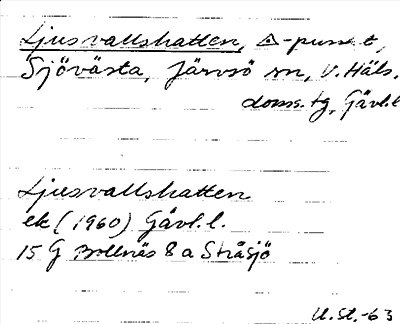 Ljusvallshatten, △-punkt,
Sjövästa, Järvsö sn, V. Häls.
doms. tg, Gävl. l
Ljusvallshatten
ek (1960) Gävl. l.
15 G Bollnäs 8 a Stråsjö
U. St. -63